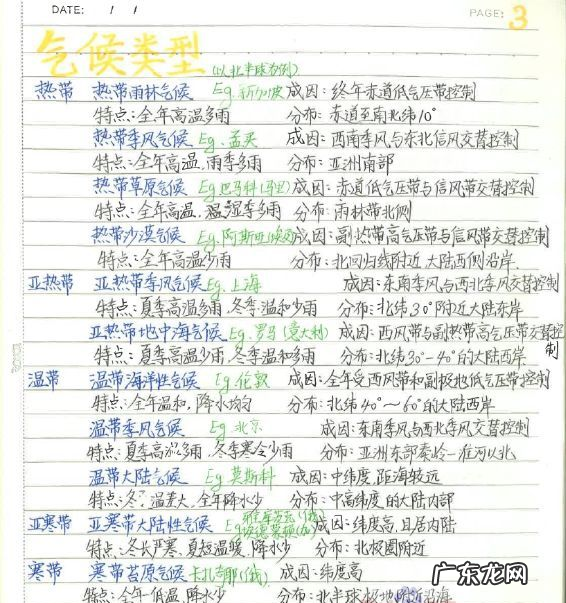 DATE: / /
PAGE: 3
气候类型 (以北半球为例)
热带 热带雨林气候 Eg.新加坡 成因:终年赤道低气压带控制
特点:全年高温多雨 分布:赤道至南北纬10°
热带季风气候 Eg.孟买 成因:西南季风与东北信风交替控制
特点:全年高温,雨季多雨 分布:亚洲南部
热带草原气候 Eg.巴马科(马里) 成因:赤道低气压带与信风带交替控制
特点:全年高温,湿季多雨 分布:雨林带北侧
热带沙漠气候 Eg.阿斯旺(埃及) 成因:副热带高气压带与信风带交替控制
特点:全年高温少雨 分布:北回归线附近大陆西侧沿岸
亚热带 亚热带季风气候 Eg.上海 成因:东南季风与西北季风交替控制
特点:夏季高温多雨,冬季温和少雨 分布:北纬30°附近大陆东岸
亚热带地中海气候 Eg.罗马(意大利) 成因:西风带与副热带高气压带交替控制
特点:夏季高温少雨,冬季温和多雨 分布:北纬30°-40°的大陆西岸
温带 温带海洋性气候 Eg.伦敦 成因:全年受西风带和副极地低气压带控制
特点:全年温和,降水均匀 分布:北纬40°~60°的大陆西岸
温带季风气候 Eg.北京 成因:东南季风与西北季风交替控制
特点:夏季高温多雨,冬季寒冷少雨 分布:亚洲东部秦岭-淮河以北
温带大陆气候 Eg.莫斯科 成因:中纬度,距海较远
特点:冬 温差大,全年降水少 分布:中高纬度的大陆内部
亚寒带 亚寒带大陆性气候 Eg. 成因:纬度高,且居内陆
特点:冬长严寒,夏短温暖,降水少 分布:北极圈附近
寒带 寒带苔原气候 成因:纬度高
特点:全年低温,降水少 分布:北半球极地附近沿海
广东龙网